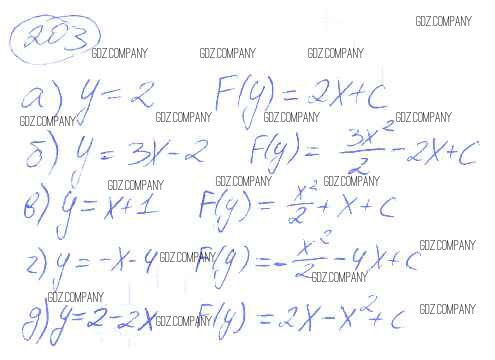 203
GDZ.COMPANY
GDZ.COMPANY GDZ.COMPANY GDZ.COMPANY
а) y = 2 F(y) = 2x + C
GDZ.COMPANY GDZ.COMPANY GDZ.COMPANY GDZ.COMPANY
б) y = 3x - 2 F(y) = 3x²/2 - 2x + C
GDZ.COMPANY GDZ.COMPANY GDZ.COMPANY
в) y = x + 1 F(y) = x²/2 + x + C
г) y = -x - 4 F(y) = -x²/2 - 4x + C
GDZ.COMPANY GDZ.COMPANY GDZ.COMPANY
GDZ.COMPANY
д) y = 2 - 2x F(y) = 2x - x² + C
GDZ.COMPANY GDZ.COMPANY